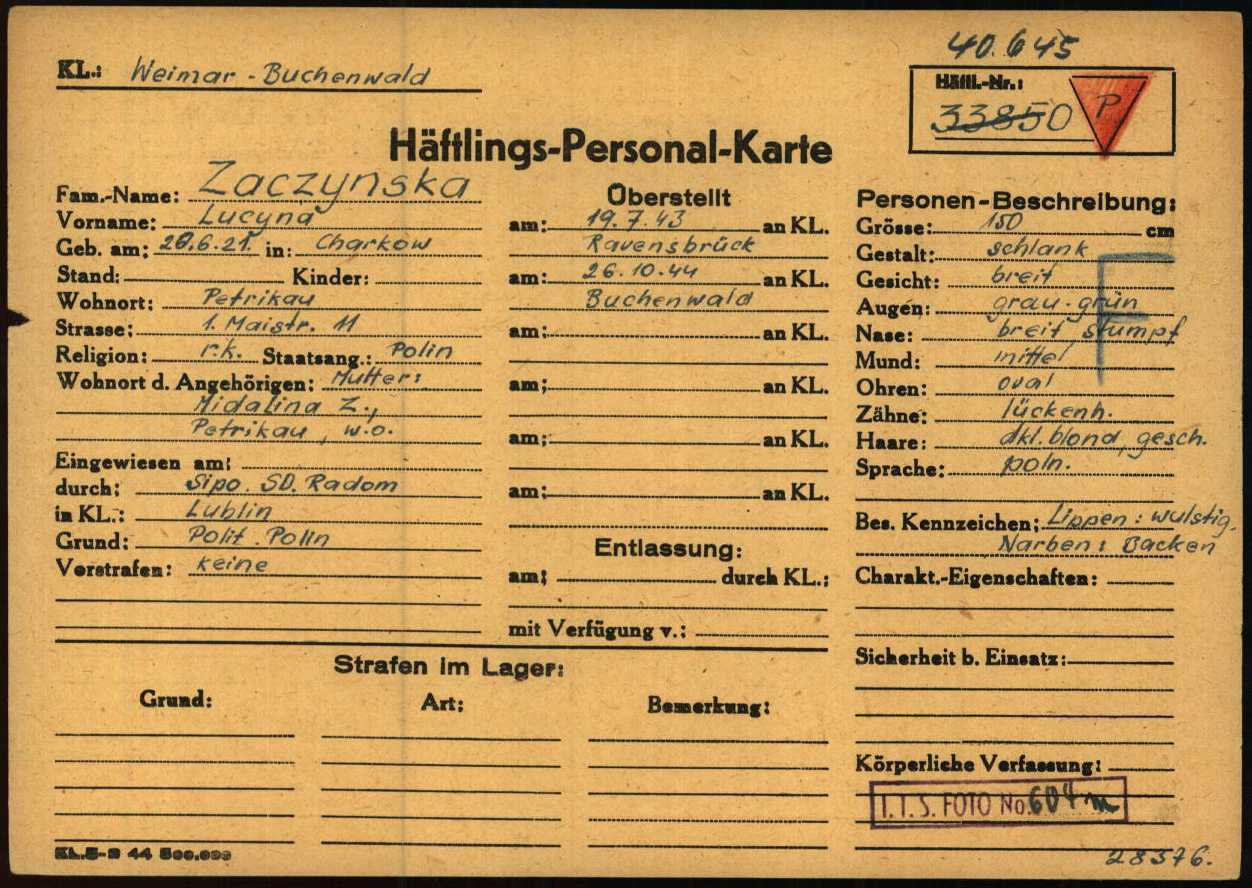 40.645
KL.: Weimar-Buchenwald
Häftl.-Nr.:
33850 P
Häftlings-Personal-Karte
Fam.-Name: Zaczynska
Vorname: Lucyna
Geb. am: 20.6.21. in: Charkow
Stand: Kinder:
Wohnort: Petrikau
Strasse: 1. Maistr. 11
Religion: r.k. Staatsang.: Polin
Wohnort d. Angehörigen: Mutter:
Midalina Z.,
Petrikau, w.o.
Eingewiesen am:
durch: Sipo. SD. Radom
in KL.: Lublin
Grund: Polit. Polin
Vorstrafen: keine
Überstellt
am: 19.7.43 an KL.
Ravensbrück
am: 26.10.44 an KL.
Buchenwald
am: an KL.
am: an KL.
am: an KL.
am: an KL.
Entlassung:
am: durch KL.:
mit Verfügung v.:
Personen-Beschreibung:
Grösse: 150 cm
Gestalt: schlank
Gesicht: breit
F
Augen: grau-grün
Nase: breit, stumpf
Mund: mittel
Ohren: oval
Zähne: lückenh.
Haare: dkl.blond, gesch.
Sprache: poln.
Bes. Kennzeichen: Lippen: wulstig.
Narben: Backen
Charakt.-Eigenschaften:
Sicherheit b. Einsatz:
Körperliche Verfassung:
I.T.S. FOTO No. 604 m
Strafen im Lager:
Grund: Art: Bemerkung:
28576.